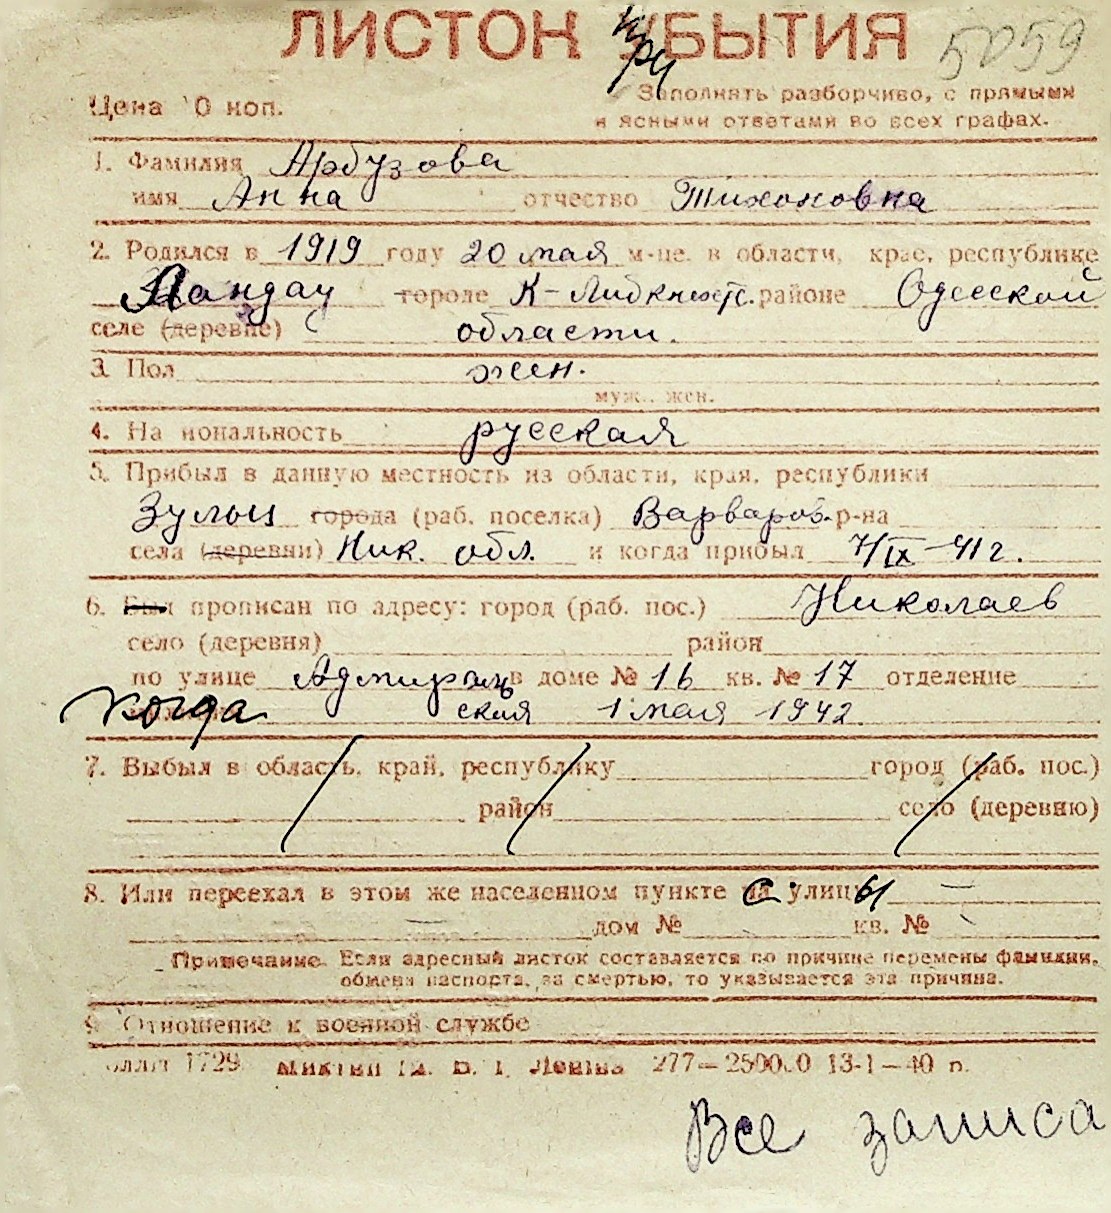 ЛИСТОК УБЫТИЯ 5059
при
Цена 10 коп. Заполнять разборчиво, с прямыми
и ясными ответами во всех графах.
1. Фамилия Арбузова
имя Анна отчество Тихоновна
2. Родился в 1919 году 20 мая м-це в области, крае, республике
Ландау городе К-Либкнехт. районе Одесской
селе (деревне) области.
3. Пол жен.
муж., жен.
4. Национальность русская
5. Прибыл в данную местность из области, края, республики
Зульц города (раб. поселка) Варваров. р-на
села (деревни) Ник. обл. и когда прибыл 7/IX-41 г.
6. Был прописан по адресу: город (раб. пос.) Николаев
село (деревня) район
по улице Адмираль в доме № 16 кв. № 17 отделение
когда ская 1 мая 1942
7. Выбыл в область, край, республику город (раб. пос.)
район село (деревню)
8. Или переехал в этом же населенном пункте с улицы —
— дом № кв. № —
Примечание. Если адресный листок составляется по причине перемены фамилии,
обмена паспорта, за смертью, то указывается эта причина.
9. Отношение к военной службе
1729 Ленина 277—250000 13-1—40 р.
Все записа